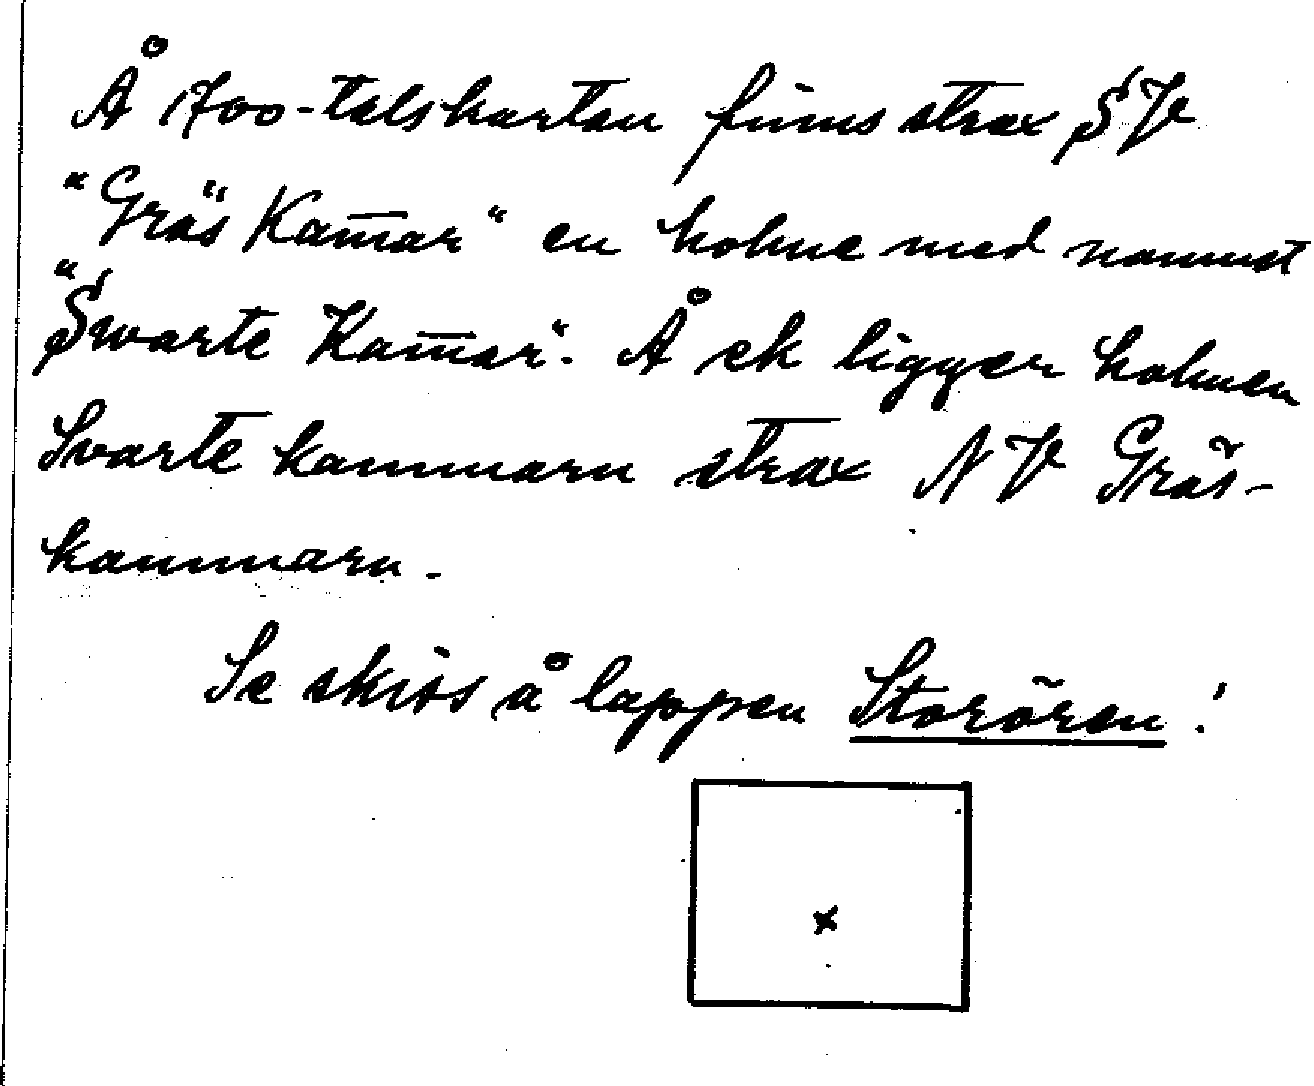 Å 1700-talskartan finns strax S Ve
"Gräs Kam̅ar" en holme med namnet
"Swarte Kam̅ar". Å ek ligger holmen
Svarte kammarn strax N Ve Gräs-
kammarn.
Se skiss å lappen Storören!
x